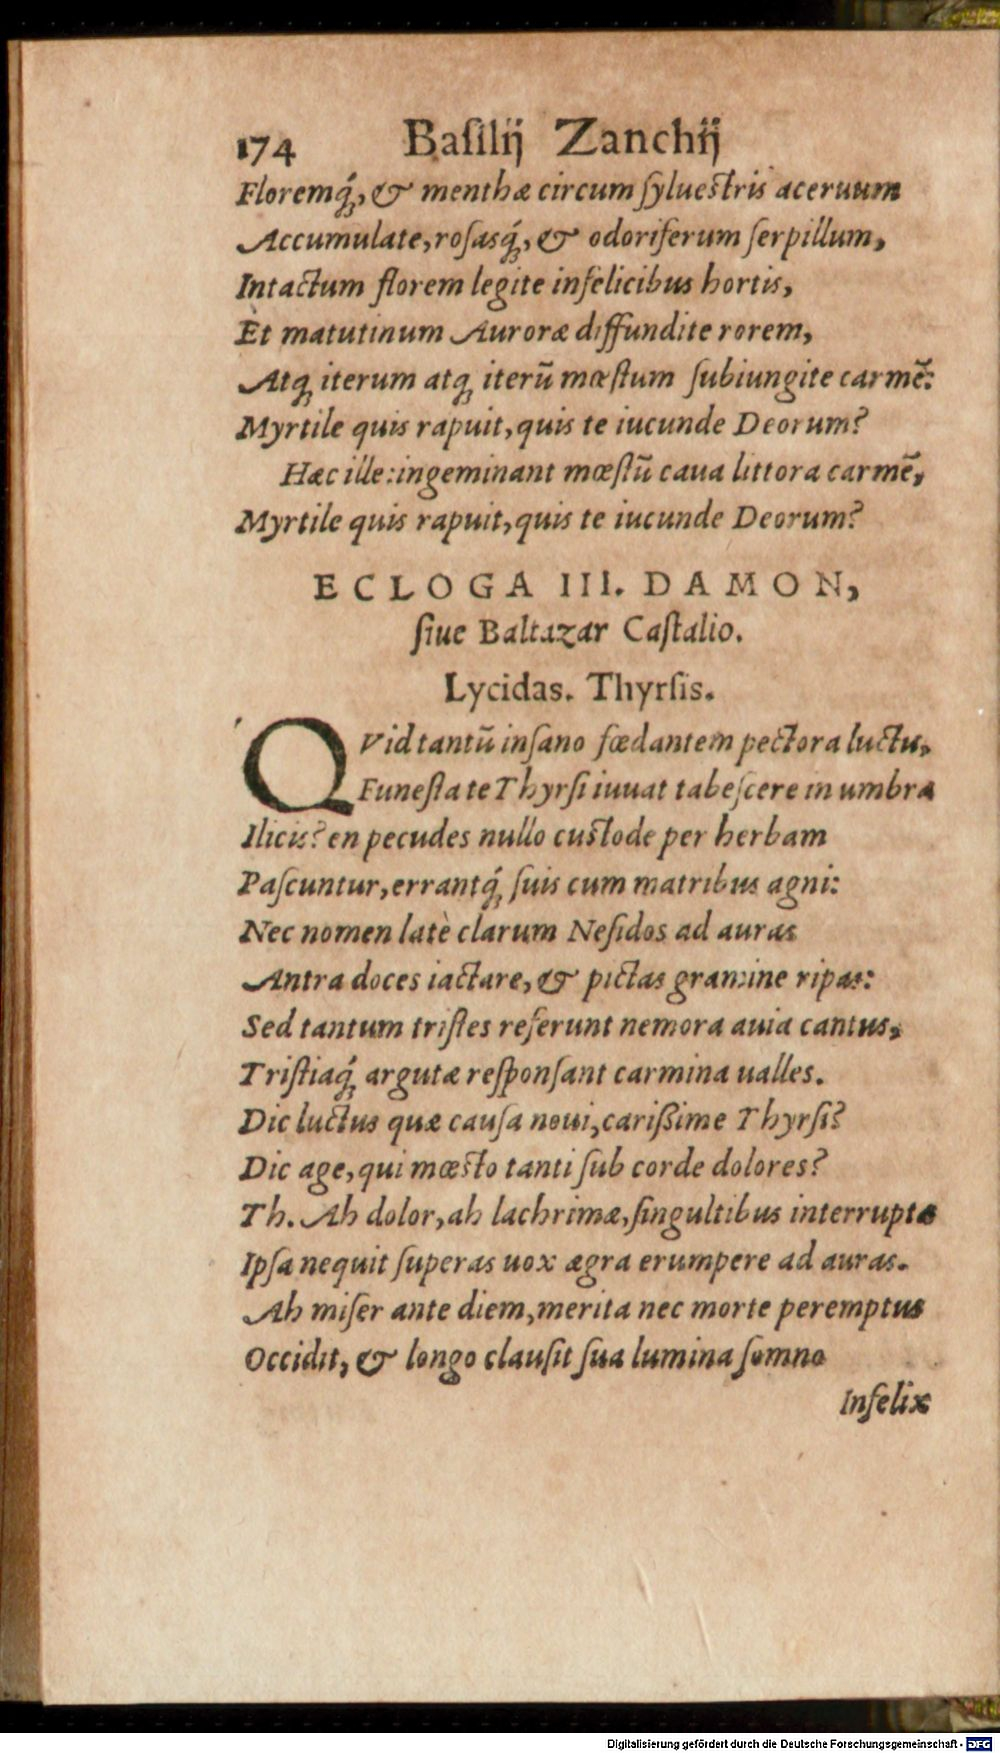 174 Baſilij Zanchij
Floremq́;, & menthæ circum ſylueſtris aceruum
Accumulate, roſasq́;, & odoriferum ſerpillum,
Intactum florem legite infelicibus hortis,
Et matutinum Auroræ diffundite rorem,
Atq; iterum atq; iterũ mœſtum ſubiungite carmẽ:
Myrtile quis rapuit, quis te iucunde Deorum?
Hæc ille: ingeminant mœſtũ caua littora carmẽ,
Myrtile quis rapuit, quis te iucunde Deorum?
ECLOGA III. DAMON,
ſiue Baltazar Caſtalio.
Lycidas. Thyrſis.
QVid tantũ inſano fœdantem pectora luctu,
Funeſta te Thyrſi iuuat tabeſcere in umbra
Ilicis? en pecudes nullo cuſtode per herbam
Paſcuntur, errantq́; ſuis cum matribus agni:
Nec nomen latè clarum Neſidos ad auras
Antra doces iactare, & pictas gramine ripas:
Sed tantum triſtes referunt nemora auia cantus,
Triſtiaq́; argutæ reſponſant carmina ualles.
Dic luctus quæ cauſa noui, cariſſime Thyrſi?
Dic age, qui mœſto tanti ſub corde dolores?
Th. Ah dolor, ah lachrimæ, ſingultibus interrupta
Ipſa nequit ſuperas uox ægra erumpere ad auras.
Ah miſer ante diem, merita nec morte peremptus
Occidit, & longo clauſit ſua lumina ſomno
Infelix
Digitalisierung gefördert durch die Deutsche Forschungsgemeinschaft - DFG